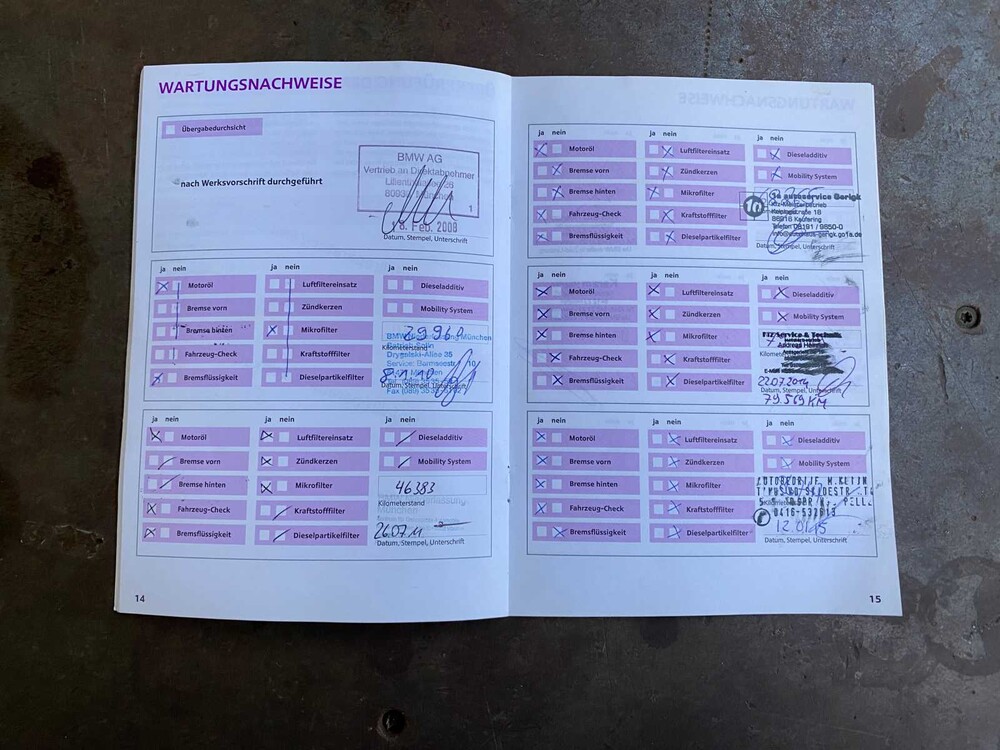 WARTUNGSNACHWEISE
Übergabedurchsicht
nach Werksvorschrift durchgeführt
BMW AG
Vertrieb an Direktabnehmer
Lilienthalallee 26
80939 München
1
8. Feb. 2008
Datum, Stempel, Unterschrift
ja nein ja nein ja nein
Motoröl Luftfiltereinsatz Dieseladditiv
Bremse vorn Zündkerzen Mobility System
Bremse hinten Mikrofilter
29960
München
Kilometerstand
Fahrzeug-Check Kraftstofffilter
Drygalski-Allee 35
Bremsflüssigkeit Dieselpartikelfilter
8.11.10
Datum, Stempel, Unterschrift
Fax (089)
ja nein ja nein ja nein
Motoröl Luftfiltereinsatz Dieseladditiv
Bremse vorn Zündkerzen Mobility System
Bremse hinten Mikrofilter
46383
Kilometerstand
München
Fahrzeug-Check Kraftstofffilter
Bremsflüssigkeit Dieselpartikelfilter
26.07.11
Datum, Stempel, Unterschrift
14
ja nein ja nein ja nein
Motoröl Luftfiltereinsatz Dieseladditiv
Bremse vorn Zündkerzen Mobility System
Bremse hinten Mikrofilter
1a autoservice Gerigk
Kfz-Meisterbetrieb
Fahrzeug-Check Kraftstofffilter
86916 Kaufering
Telefon 08191 / 9650-0
Bremsflüssigkeit Dieselpartikelfilter
info@autohaus-gerigk.go1a.de
Datum, Stempel, Unterschrift
ja nein ja nein ja nein
Motoröl Luftfiltereinsatz Dieseladditiv
Bremse vorn Zündkerzen Mobility System
Bremse hinten Mikrofilter
Service & Technik
Andreas
Fahrzeug-Check Kraftstofffilter
Bremsflüssigkeit Dieselpartikelfilter
22.07.2014
Datum, Stempel, Unterschrift
79.569 KM
ja nein ja nein ja nein
Motoröl Luftfiltereinsatz Dieseladditiv
Bremse vorn Zündkerzen Mobility System
Bremse hinten Mikrofilter
AUTOBEDRIJF M. KLIJN
Kilometerstand
Fahrzeug-Check Kraftstofffilter
Bremsflüssigkeit Dieselpartikelfilter
12.01.15
Datum, Stempel, Unterschrift
15